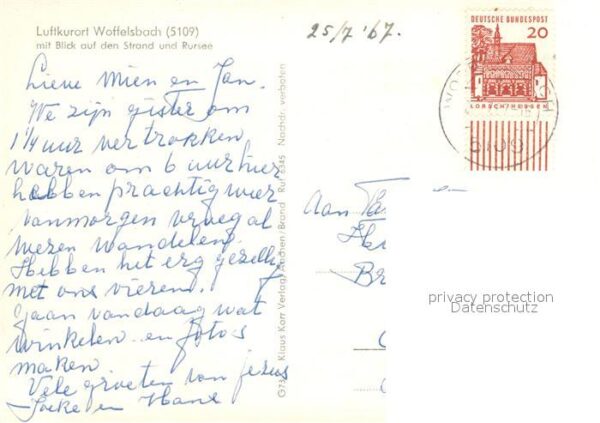 Luftkurort Woffelsbach (5109)
mit Blick auf den Strand und Rursee
25/7 '67.
DEUTSCHE BUNDESPOST
20
LORSCH/HESSEN
5109
Lieve Mien en Jan.
We zijn gister om
1¼ uur vertrokken
waren om 6 uur hier
hebben prachtig weer
vanmorgen vroeg al
wezen wandelen.
Hebben het erg gezellig
met ons vieren.
gaan vandaag wat
winkelen en foto's
maken
Vele groeten van
Joke en Hans
Aan
Br
Klaus Karr Verlag, Aachen/Brand Rur 6345 Nachdr. verboten
privacy protection
Datenschutz